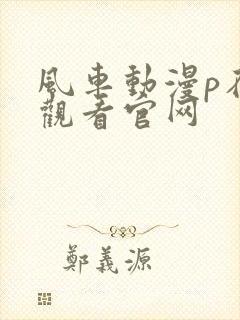 風車動漫p
觀看官网
鄭義源